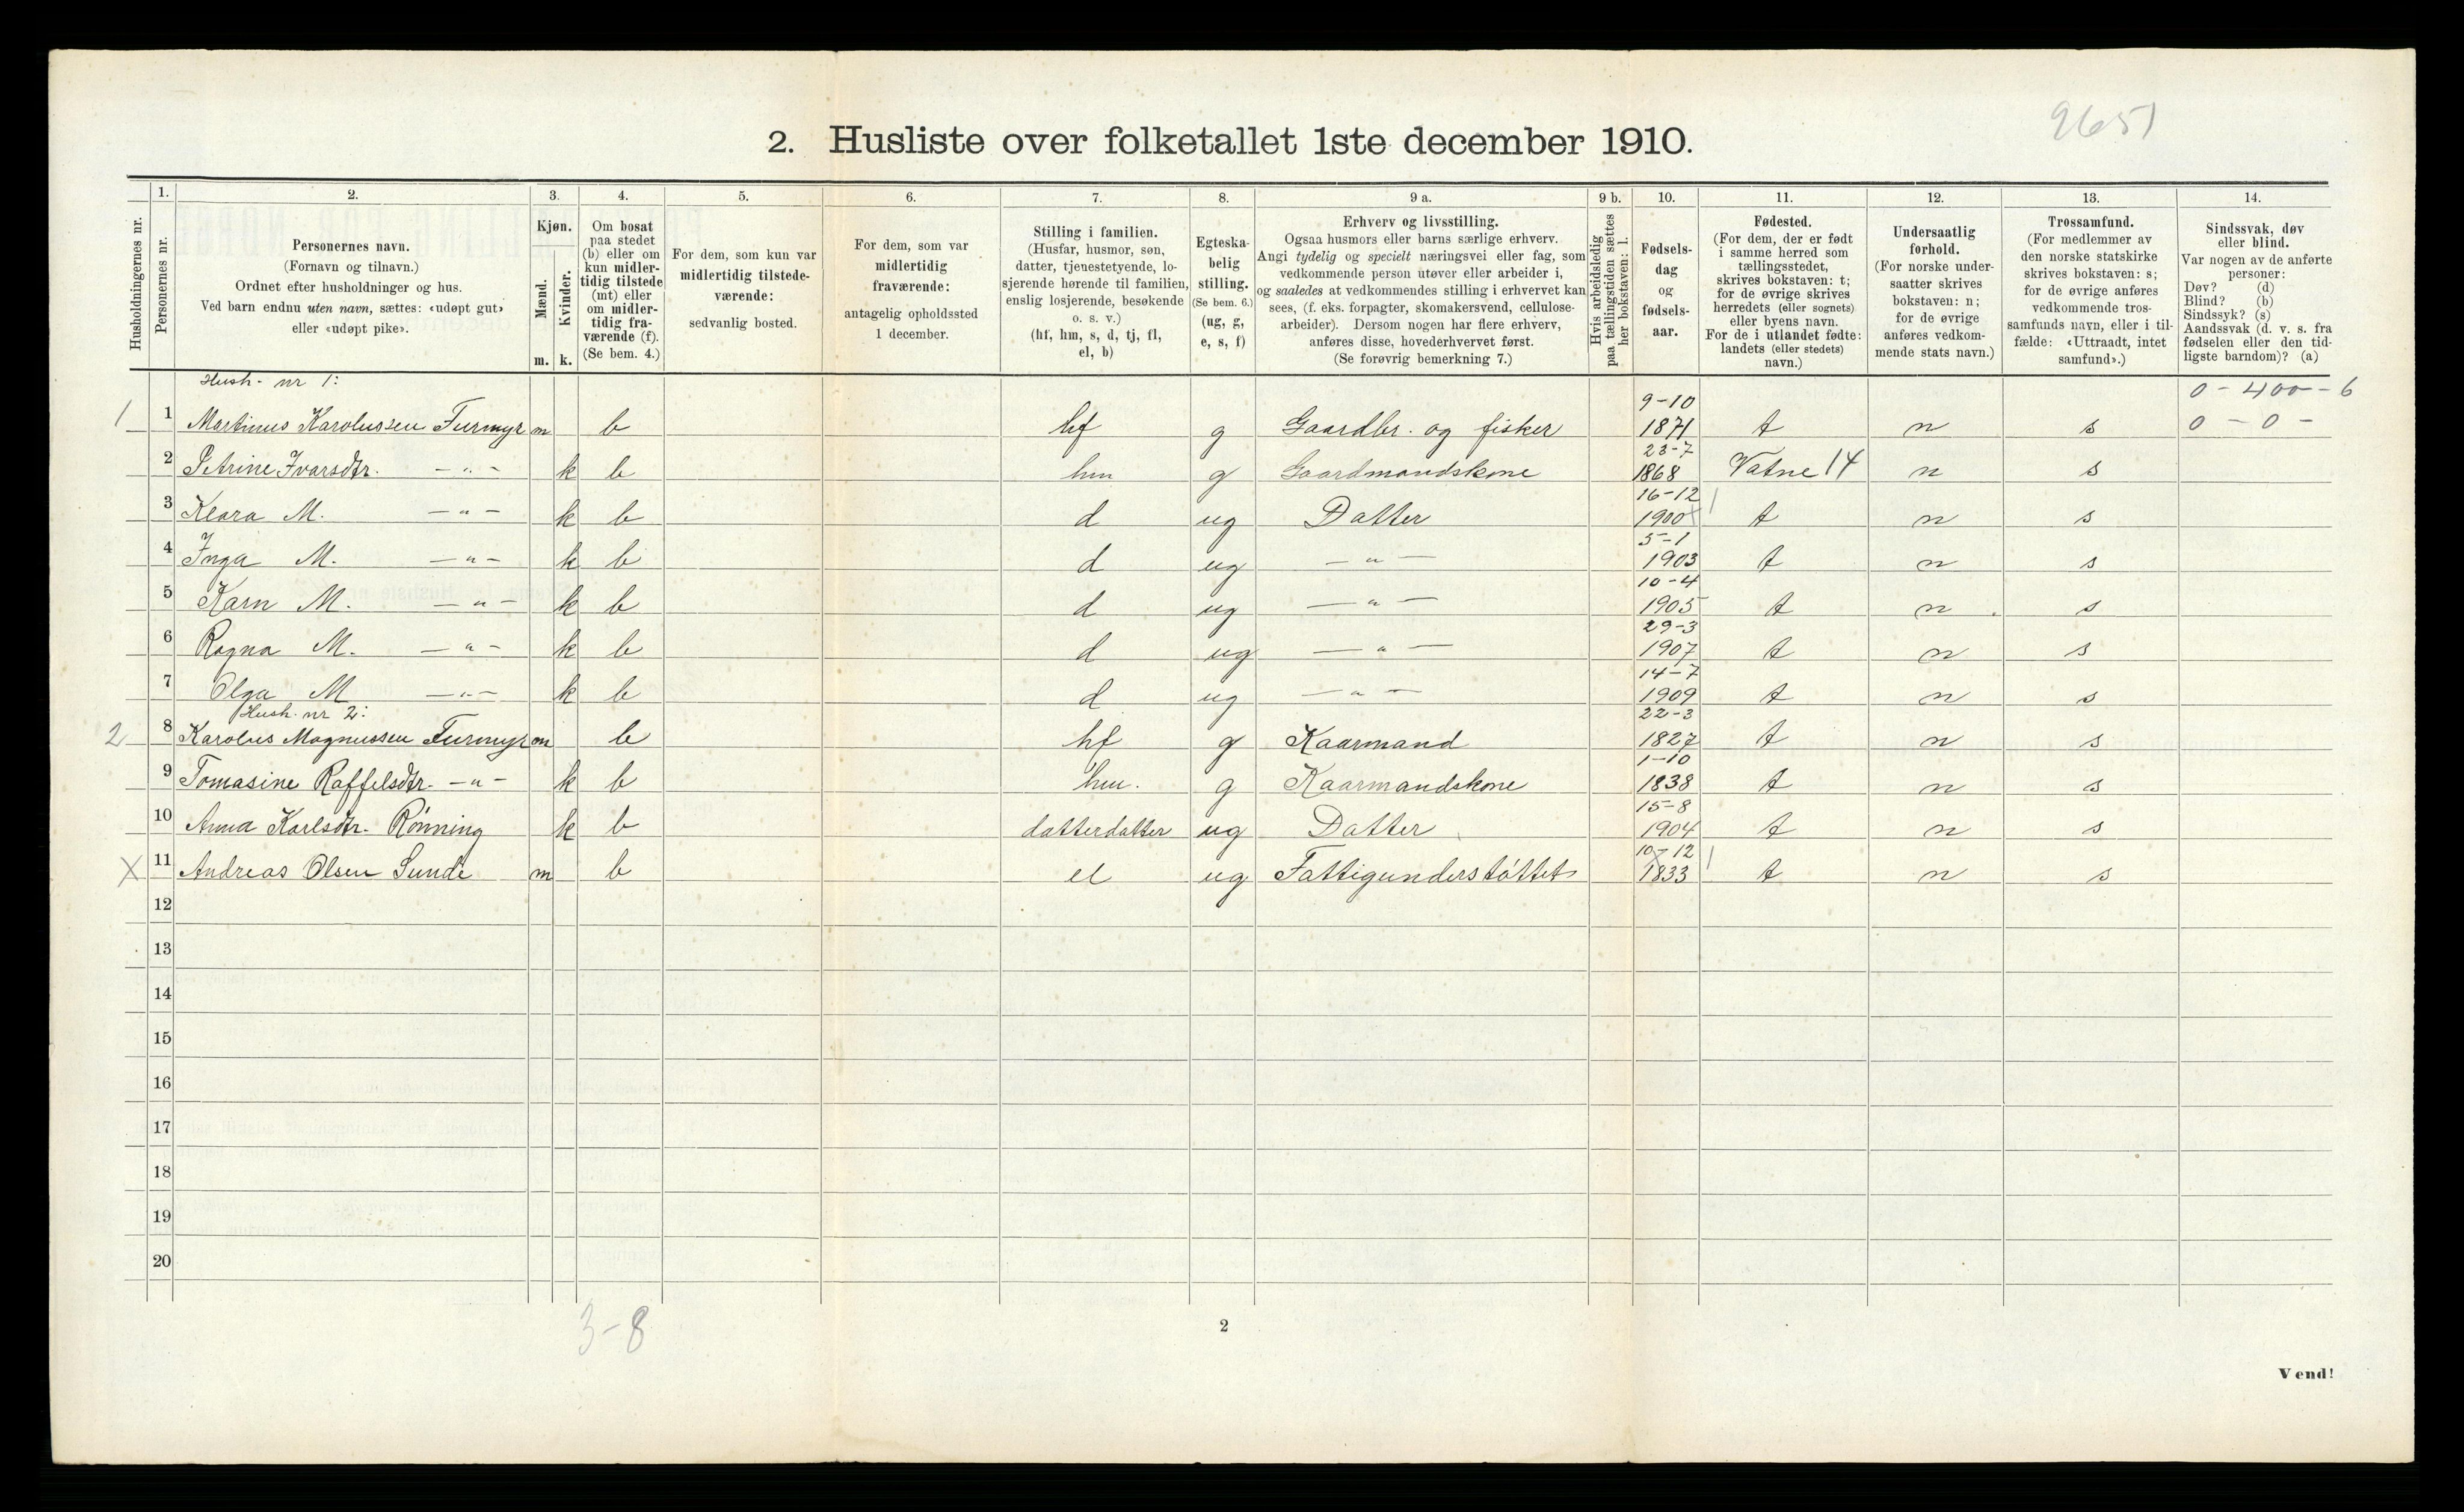 9651
2. Husliste over folketallet 1ste december 1910.
Husholdningernes nr.
1.
Personernes nr.
2.
Personernes navn.
(Fornavn og tilnavn.)
Ordnet efter husholdninger og hus.
Ved barn endnu uten navn, sættes: «udøpt gut»
eller «udøpt pike».
3.
Kjøn.
Mænd.
m.
Kvinder.
k.
4.
Om bosat
paa stedet
(b) eller om
kun midler-
tidig tilstede
(mt) eller
om midler-
tidig fra-
værende (f).
(Se bem. 4.)
5.
For dem, som kun var
midlertidig tilstede-
værende:
sedvanlig bosted.
6.
For dem, som var
midlertidig
fraværende:
antagelig opholdssted
1 december.
7.
Stilling i familien.
(Husfar, husmor, søn,
datter, tjenestetyende, lo-
sjerende hørende til familien,
enslig losjerende, besøkende
o. s. v.)
(hf, hm, s, d, tj, fl,
el, b)
8.
Egteska-
belig
stilling.
(Se bem. 6.)
(ug, g,
e, s, f)
9 a.
Erhverv og livsstilling.
Ogsaa husmors eller barns særlige erhverv.
Angi tydelig og specielt næringsvei eller fag, som
vedkommende person utøver eller arbeider i,
og saaledes at vedkommendes stilling i erhvervet kan
sees, (f. eks. forpagter, skomakersvend, cellulose-
arbeider). Dersom nogen har flere erhverv,
anføres disse, hovederhvervet først.
(Se forøvrig bemerkning 7.)
9 b.
Hvis arbeidsledig
paa tællingstiden sættes
her bokstaven: l.
10.
Fødsels-
dag
og
fødsels-
aar.
11.
Fødested.
(For dem, der er født
i samme herred som
tællingsstedet,
skrives bokstaven: t;
for de øvrige skrives
herredets (eller sognets)
eller byens navn.
For de i utlandet fødte:
landets (eller stedets)
navn.)
12.
Undersaatlig
forhold.
(For norske under-
saatter skrives
bokstaven: n;
for de øvrige
anføres vedkom-
mende stats navn.)
13.
Trossamfund.
(For medlemmer av
den norske statskirke
skrives bokstaven: s;
for de øvrige anføres
vedkommende tros-
samfunds navn, eller i til-
fælde: «Uttraadt, intet
samfund».)
14.
Sindssvak, døv
eller blind.
Var nogen av de anførte
personer:
Døv? (d)
Blind? (b)
Sindssyk? (s)
Aandssvak (d. v. s. fra
fødselen eller den tid-
ligste barndom)? (a)
Hush. nr 1: 0 - 400 - 6
1 1 Martinus Karolussen Furmyr m b hf g Gaardbr. og fisker 9-10 1871 t n s 0 - 0 -
2 Petrine Ivarsdtr. - " - k b hm g Gaardmandskone 23-7 1868 Vatne 14 n s
3 Klara M. - " - k b d ug Datter 16-12 1900 t n s
4 Inga M. - " - k b d ug - " - 5-1 1903 t n s
5 Karn M. - " - k b d ug - " - 10-4 1905 t n s
6 Ragna M. - " - k b d ug - " - 29-3 1907 t n s
7 Olga M - " - k b d ug - " - 14-7 1909 t n s
Hush. nr 2:
2 8 Karolus Magnussen Furmyr m b hf g Kaarmand 22-3 1827 t n s
9 Tomasine Raffelsdtr. - " - k b hm. g Kaarmandskone 1-10 1838 t n s
10 Anna Karlsdtr. Rønning k b datterdatter ug Datter 15-8 1904 t n s
X 11 Andreas Olsen Sunde m b el ug Fattigunderstøttet 10-12 1833 t n s
12
13
14
15
16
17
18
19
20
3-8
2
Vend!